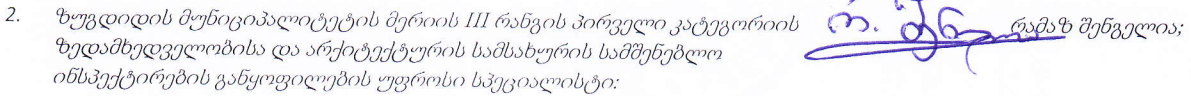 2. ზუგდიდის მუნიციპალიტეტის მერიის III რანგის პირველი კატეგორიის რამაზ შენგელია;
ზედამხედველობისა და არქიტექტურის სამსახურის სამშენებლო
ინსპექტირების განყოფილების უფროსი სპეციალისტი: